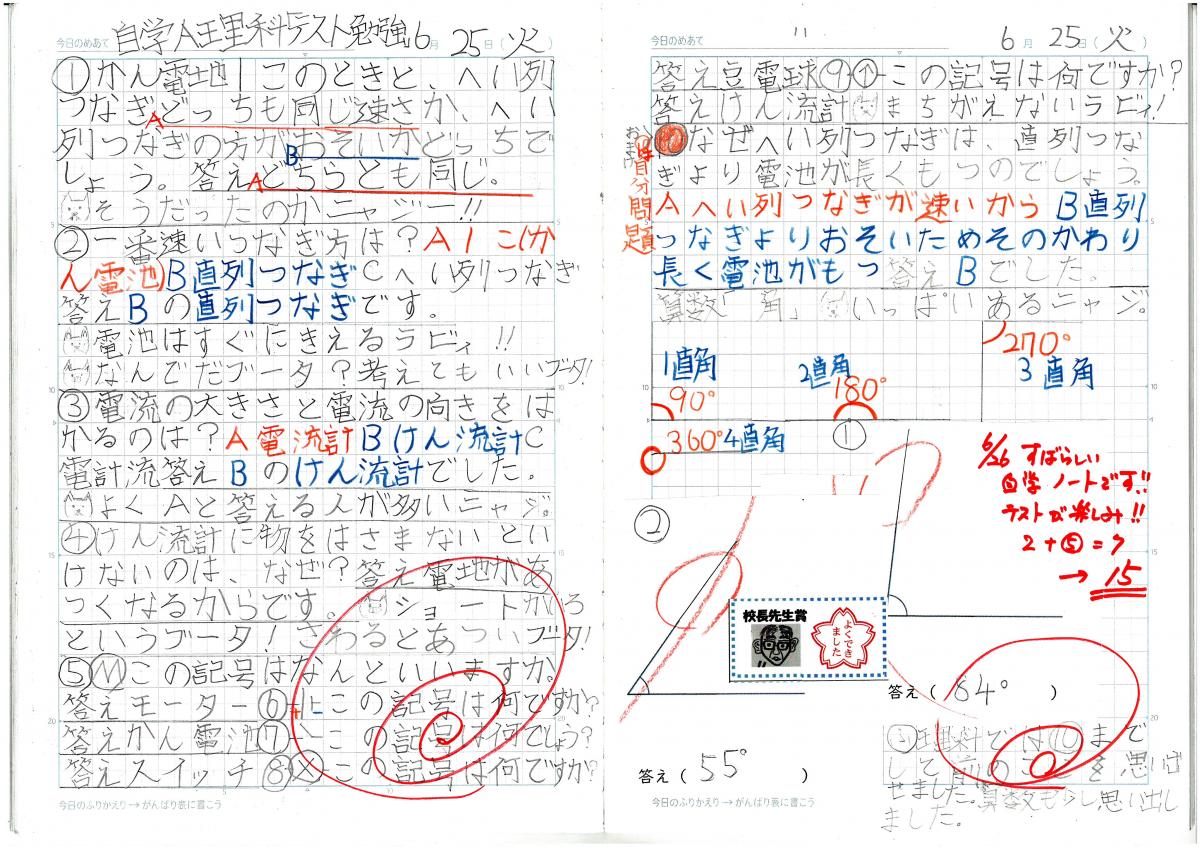 今日のめあて 自学A理科テスト勉強 6月 25日(火)
①かん電地1このときと、へい列
つなぎどっちも同じ速さか、へい
列つなぎの方がおそいかどっちで
しょう。答えAどちらとも同じ。
そうだったのかニャジー!!
②一番速いつなぎ方は?A1こ(か
ん電池)B直列つなぎCへい列つなぎ
答えBの直列つなぎです。
電池はすぐにきえるラビィ!!
なんでだブータ?考えてもいいブータ!
③電流の大きさと電流の向きをは
かるのは?A電流計Bけん流計C
電計流答えBのけん流計でした。
よくAと答える人が多いニャジ。
④けん流計に物をはさまないとい
けないのは、なぜ?答え電地があ
つくなるからです。ショートがいる
というブータ!さわるとあついブタ!
⑤Mこの記号はなんといいますか。
答えモーター⑥この記号は何ですか?
答えかん電池⑦この記号は何でしょう?
答えスイッチ⑧この記号は何ですか?
今日のふりかえり→がんばり表に書こう
今日のめあて 〃 6月 25日(火)
答え豆電球⑨この記号は何ですか?
答えけん流計 まちがえないラビィ!
なぜへい列つなぎは、直列つな
ぎより電池が長くもつのでしょう。
自分問題
Aへい列つなぎが速いから B直列
つなぎよりおそいためそのかわり
長く電池がもつ 答えBでした。
算数「角」いっぱいあるニャジ。
1直角 90°
2直角 180°
270° 3直角
360° 4直角
①
6/26 すばらしい
自学ノートです!!
テストが楽しみ!!
2+⑤=7
→15
②
校長先生賞
よくでき
ました
答え( 84° )
答え( 55° )
今日のふりかえり→がんばり表に書こう
理科では⑩まで
して前のことを思い出
せました。算数も少し思い出し
ました。